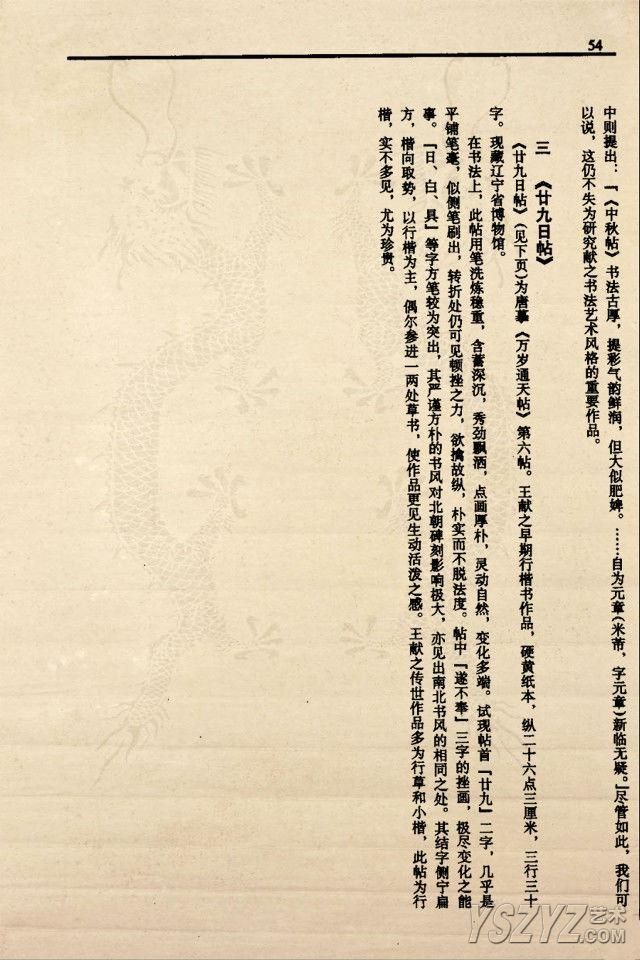 54
中则提出：“《中秋帖》书法古厚，提彩气韵鲜润，但大似肥婢。……自为元章（米芾，字元章）新临无疑。”尽管如此，我们可
以说，这仍不失为研究献之书法艺术风格的重要作品。
三　《廿九日帖》
《廿九日帖》（见下页）为唐摹《万岁通天帖》第六帖。王献之早期行楷书作品，硬黄纸本，纵二十六点三厘米，三行三十
字。现藏辽宁省博物馆。
在书法上，此帖用笔洗炼稳重，含蓄深沉，秀劲飘洒，点画厚朴，灵动自然，变化多端。试现帖首“廿九”二字，几乎是
平铺笔毫，似侧笔刷出，转折处仍可见顿挫之力，欲擒故纵，朴实而不脱法度。帖中“遂不奉”三字的挫画，极尽变化之能
事。“日、白、具”等字方笔较为突出，其严谨方朴的书风对北朝碑刻影响极大，亦见出南北书风的相同之处。其结字侧宁扁
方，楷向取势，以行楷为主，偶尔参进一两处草书，使作品更见生动活泼之感。王献之传世作品多为行草和小楷，此帖为行
楷，实不多见，尤为珍贵。
YSZYZ艺术
.COM